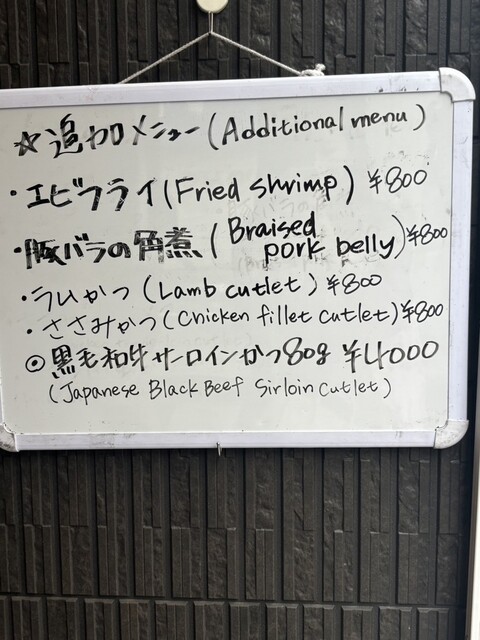 ☆追加メニュー(Additional menu)
・エビフライ(Fried shrimp) ¥800
・豚バラの角煮(Braised pork belly)¥800
・ラムかつ(Lamb cutlet) ¥800
・ささみかつ(Chicken fillet cutlet)¥800
◎黒毛和牛サーロインかつ80g ¥4000
(Japanese Black Beef Sirloin Cutlet)